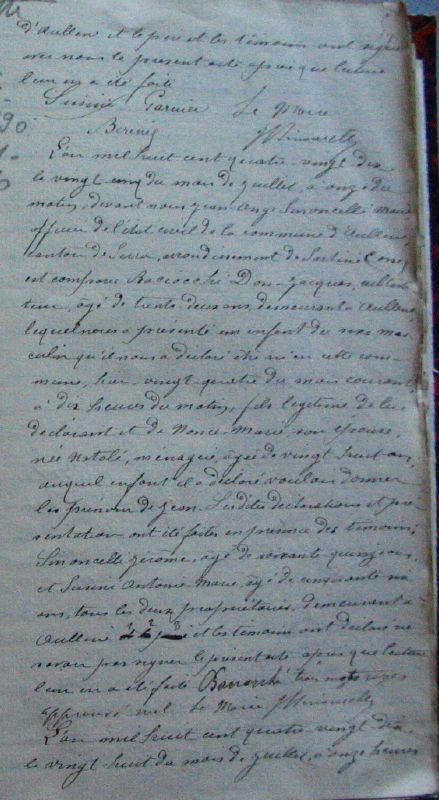 d'Aullene et le père et les témoins ont signé
avec nous le présent acte après que lecture
leur en a été faite
Susini Le Maire
JSimoncelli
90
L'an mil huit cent quatre-vingt dix
le vingt cinq du mois de juillet, à onze du
matin, devant nous Jean-Ange Simoncelli Maire
officier de l'état civil de la commune d'Aullene
canton de Serra, arrondissement de Sartène Corse,
est comparu Baciocchi Don-Jacques, cultiva-
teur, âgé de trente-deux ans, demeurant à Aullene
lequel nous a présenté un enfant du sexe mas-
culin qu'il nous a déclaré être né en cette com-
mune, hier vingt-quatre du mois courant
à dix heures du matin, fils légitime de lui
déclarant et de Nonce-Marie son épouse,
née Natali, ménagère, âgée de vingt huit ans,
auquel enfant il a déclaré vouloir donner
les prénom de Jean. Lesdites déclarations et pré-
sentation ont été faites en présence des témoins
Simoncelli Jérôme, âgé de soixante quinze ans,
et Susini Antoine Marie, âgé de cinquante
ans, tous les deux propriétaires, demeurant à
Aullene 1 2 3 et les témoins ont déclaré ne
savoir pas signer le présent acte après que lecture
leur en a été faite trois mots rayés
approuvé nul Le Maire JSimoncelli
L'an mil huit cent quatre vingt dix
le vingt-huit du mois de juillet, à onze heures